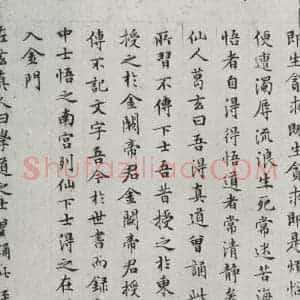 即生貪求即是煩惱
便遭濁辱流浪生死常迷苦海
悟者自得得悟道者常清靜矣
仙人葛玄曰吾得真道曾誦此
所習不傳下士吾昔授之於東
授之於金闕帝君金闕帝君授
傳不記文字吾今於世書而錄
中士悟之南宮列仙下士得之在
入金門
真人曰學道之士
Shufaziliao.COM